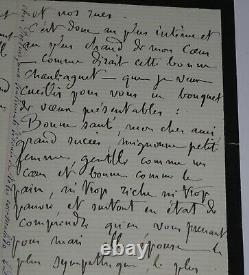 et nos rues.
C'est donc au plus intime et
au plus grand de mon cœur
— comme dirait cette bonne
Chanbaguet que je veux
cueillir pour vous un bouquet
de vœux présentables :
Bonne santé, mon cher ami
grand succès, mignonne petite
femme, gentille comme un
cœur et bonne comme le
pain, ni trop riche ni trop
pauvre et surtout en état de
comprendre qu'en vous prenant
pour mari elle épouse le
plus sympathique le plus